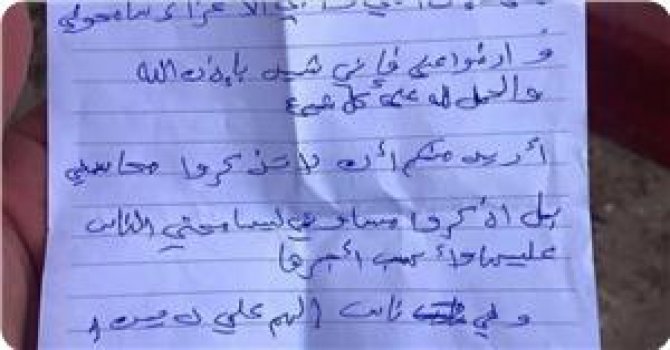 الأعزاء سامحوني
وادعوا لي فإني شهيد بإذن الله
والحمد لله على كل شيء
أريد منكم أن لا تذكروا محاسني
بل اذكروا مساوئي ليسامحني الناس
عليها وأكسب أجرها
وفي ناس الهم علي دين